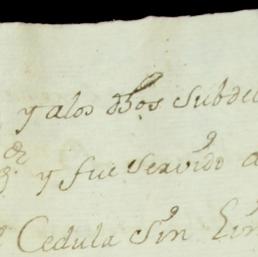 y alos dhos subde
y fue servido a
Cedula sin